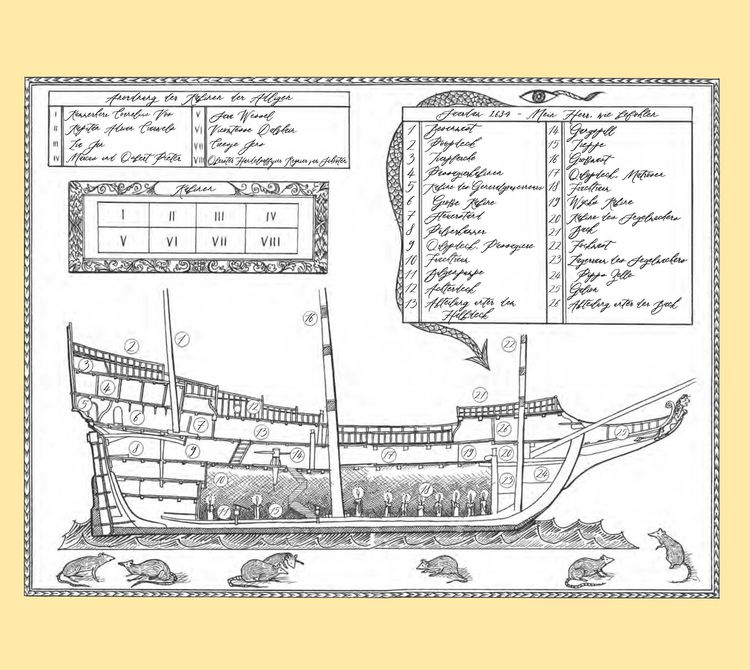 Anordnung der Kabinen der Adligen
I Kammerherr Cornelius Vos
II Kapitän Adrian Crauwels
III Lia Jan
IV Marcus und Osbert Pieter
V Sara Wessel
VI Vicomtesse Dalvhain
VII Creesje Jens
VIII Oberster Handelsoffizier Reynier van Schooten
Kabinen
I II III IV
V VI VII VIII
Saardam 1634 - Mein Herr, wie befohlen
1 Besanmast
2 Poopdeck
3 Tierpferche
4 Passagierkabinen
5 Kabine des Generalgouverneurs
6 Große Kabine
7 Steuerstand
8 Pulverkammer
9 Orlopdeck, Passagiere
10 Frachtraum
11 Bilgenpumpe
12 Achterdeck
13 Abteilung unter dem
Halbdeck
14 Gangspill
15 Treppe
16 Großmast
17 Orlopdeck, Matrosen
18 Frachtraum
19 Wycks Kabine
20 Kabine des Segelmachers
21 Back
22 Fockmast
23 Lagerraum des Segelmachers
24 Pipps Zelle
25 Galion
26 Abteilung unter der Back
16
1
22
2
3
4
21
5
6
12
7
13
26
25
8
9
14
17
19
20
10
18
23
24
11
15